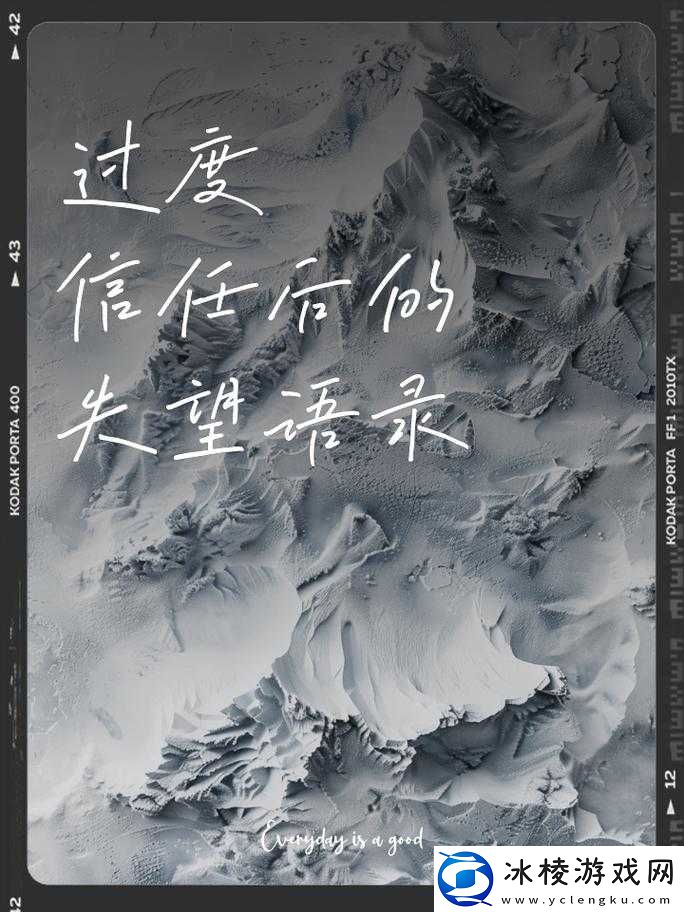 42
43
KODAK PORTA 400
过度
信任后的
失望语录
KODAK PORTA FF1 2010TX
12
Everyday is a good
冰棱游戏网
www.yclengku.com